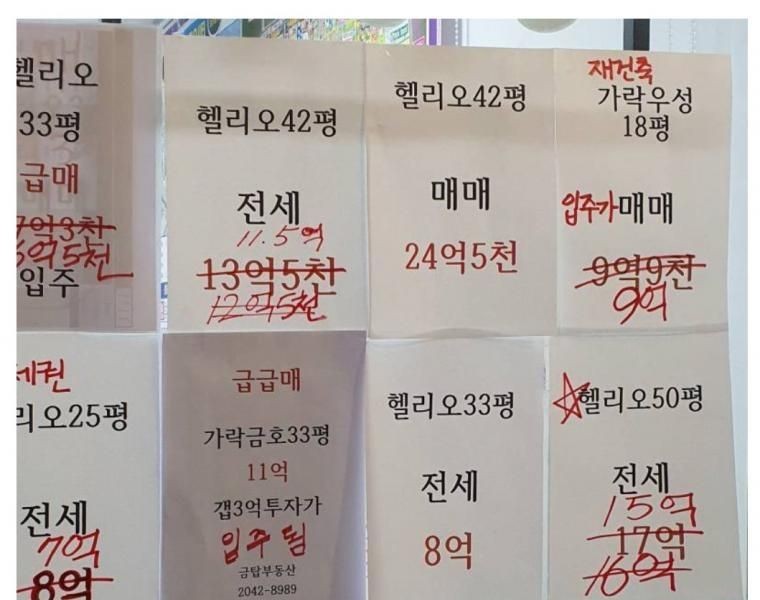 헬리오
33평
급매
7억3천
6억5천
입주
헬리오42평
전세
11.5억
13억5천
12억5천
헬리오42평
매매
24억5천
재건축
가락우성
18평
입주가 매매
9억9천
9억
세권
리오25평
전세
7억
8억
급급매
가락금호33평
11억
갭3억투자가
입주됨
금탑부동산
2042-8989
헬리오33평
전세
8억
☆헬리오50평
전세
15억
17억
16억